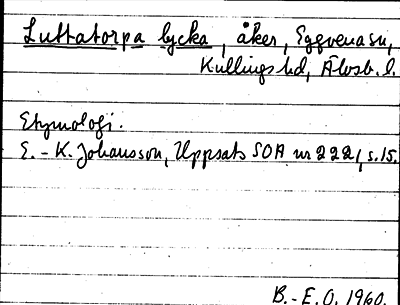 Luttatorpa lycka, åker, Eggvena sn,
Kullings hd, Älvsb. l.
Etymologi.
E.-K. Johansson, Uppsats SOA nr 2221, s. 15.
B.-E. O. 1960.